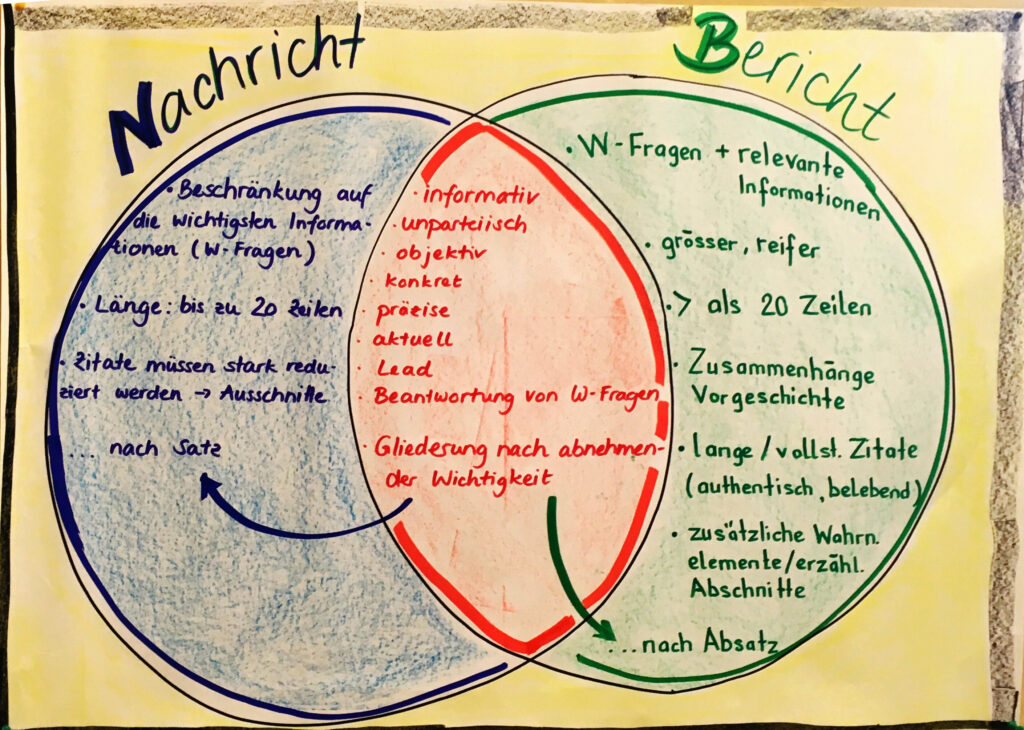 Nachricht
• Beschränkung auf
die wichtigsten Informa-
tionen (W-Fragen)
• Länge: bis zu 20 Zeilen
• Zitate müssen stark redu-
ziert werden → Ausschnitte
... nach Satz
• informativ
• unparteiisch
• objektiv
• konkret
• präzise
• aktuell
• Lead
• Beantwortung von W-Fragen
• Gliederung nach abnehmen-
der Wichtigkeit
Bericht
• W-Fragen + relevante
Informationen
• grösser, reifer
• > als 20 Zeilen
• Zusammenhänge
Vorgeschichte
• lange / vollst. Zitate
(authentisch, belebend)
• zusätzliche Wahrn.
elemente/erzähl.
Abschnitte
...nach Absatz